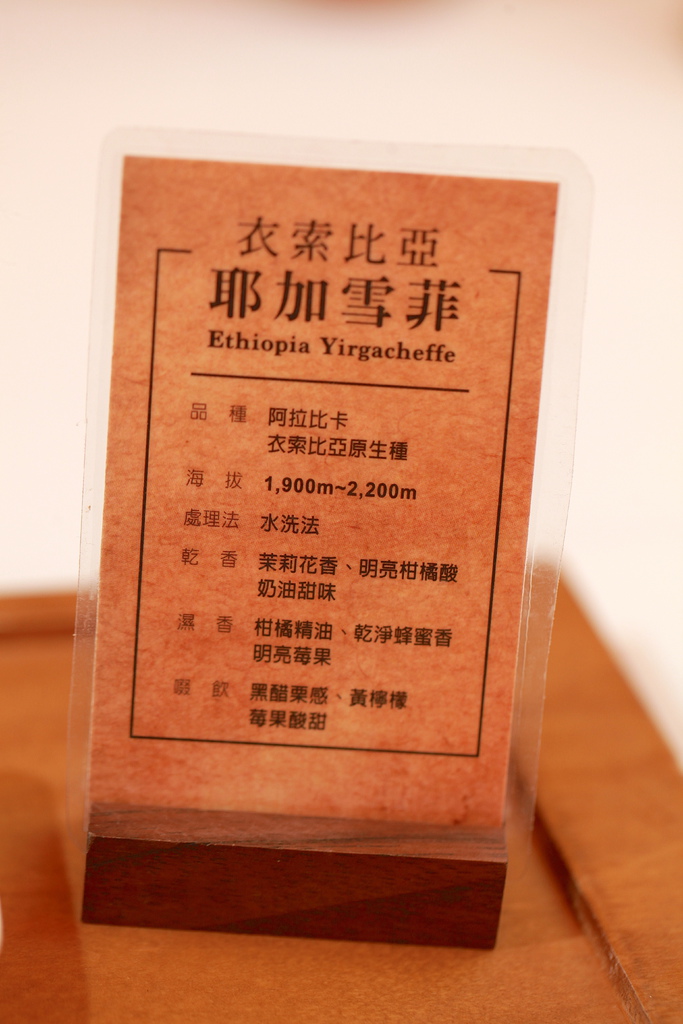 衣索比亞
耶加雪菲
Ethiopia Yirgacheffe
品種 阿拉比卡
衣索比亞原生種
海拔 1,900m~2,200m
處理法 水洗法
乾香 茉莉花香、明亮柑橘酸
奶油甜味
濕香 柑橘精油、乾淨蜂蜜香
明亮莓果
啜飲 黑醋栗感、黃檸檬
莓果酸甜